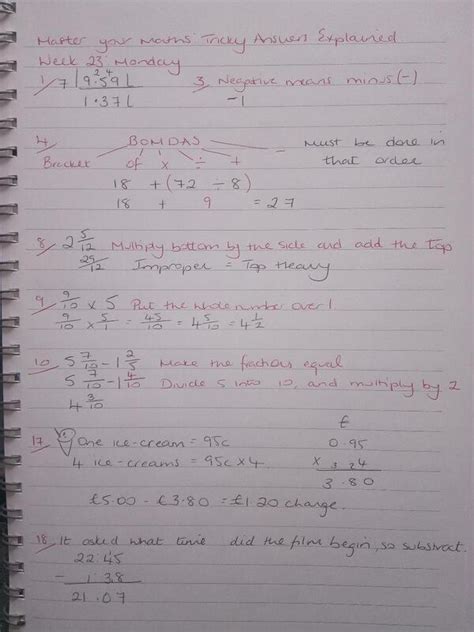 Master your Maths Tricky Answers Explained
Week 23 Monday
1/ 7 | 9.²5⁴9 L
1.37 L
3. Negative means minus (-)
-1
4. BOMDAS = Must be done in
Bracket of x ÷ + that order
18 + (72 ÷ 8)
18 + 9 = 27
8/ 2 5/12 Multiply bottom by the side and add the Top
29/12 Improper = Top Heavy
9/ 9/10 x 5 Put the whole number over 1
9/10 x 5/1 = 45/10 = 4 5/10 = 4 1/2
10. 5 7/10 - 1 2/5 Make the fractions equal
5 7/10 - 1 4/10 Divide 5 into 10, and multiply by 2
4 3/10
17/ One ice-cream = 95c
4 ice-creams = 95c x 4
€
0.95
x 4
3.80
€5.00 - €3.80 = €1.20 change.
18/ It asked what time did the film begin, so substract.
22.45
- 1.38
21.07